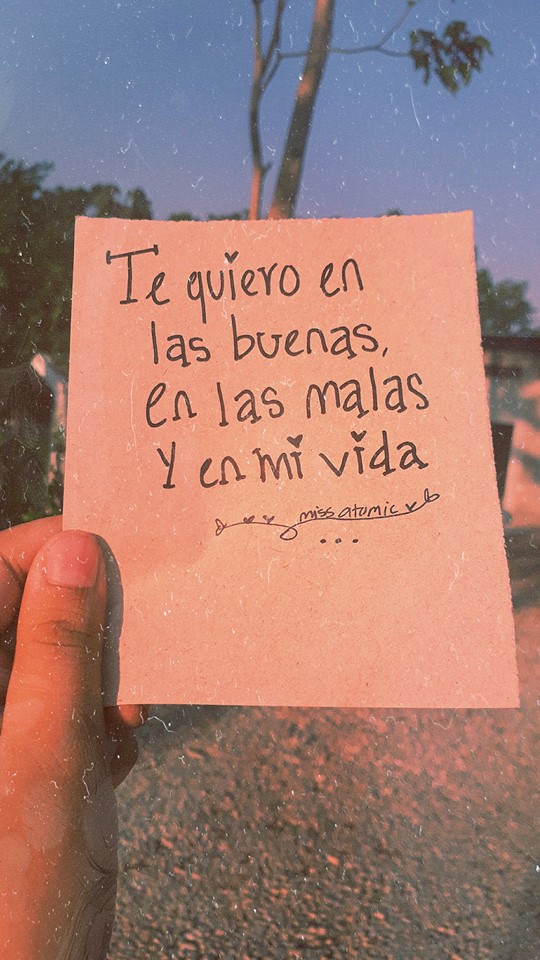 Te quiero en
las buenas,
en las malas
Y en mi vida
miss atomic
...